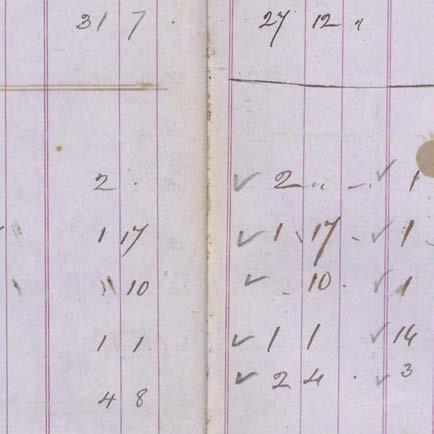 31 7 27 12 "
2 . ✓ 2 .. - . ✓ 1
1 17 ✓ 1 17 - ✓ 1
10 ✓ - 10 . ✓ 1
1 1 ✓ 1 1 ✓ 14
4 8 ✓ 2 4 . ✓ 3